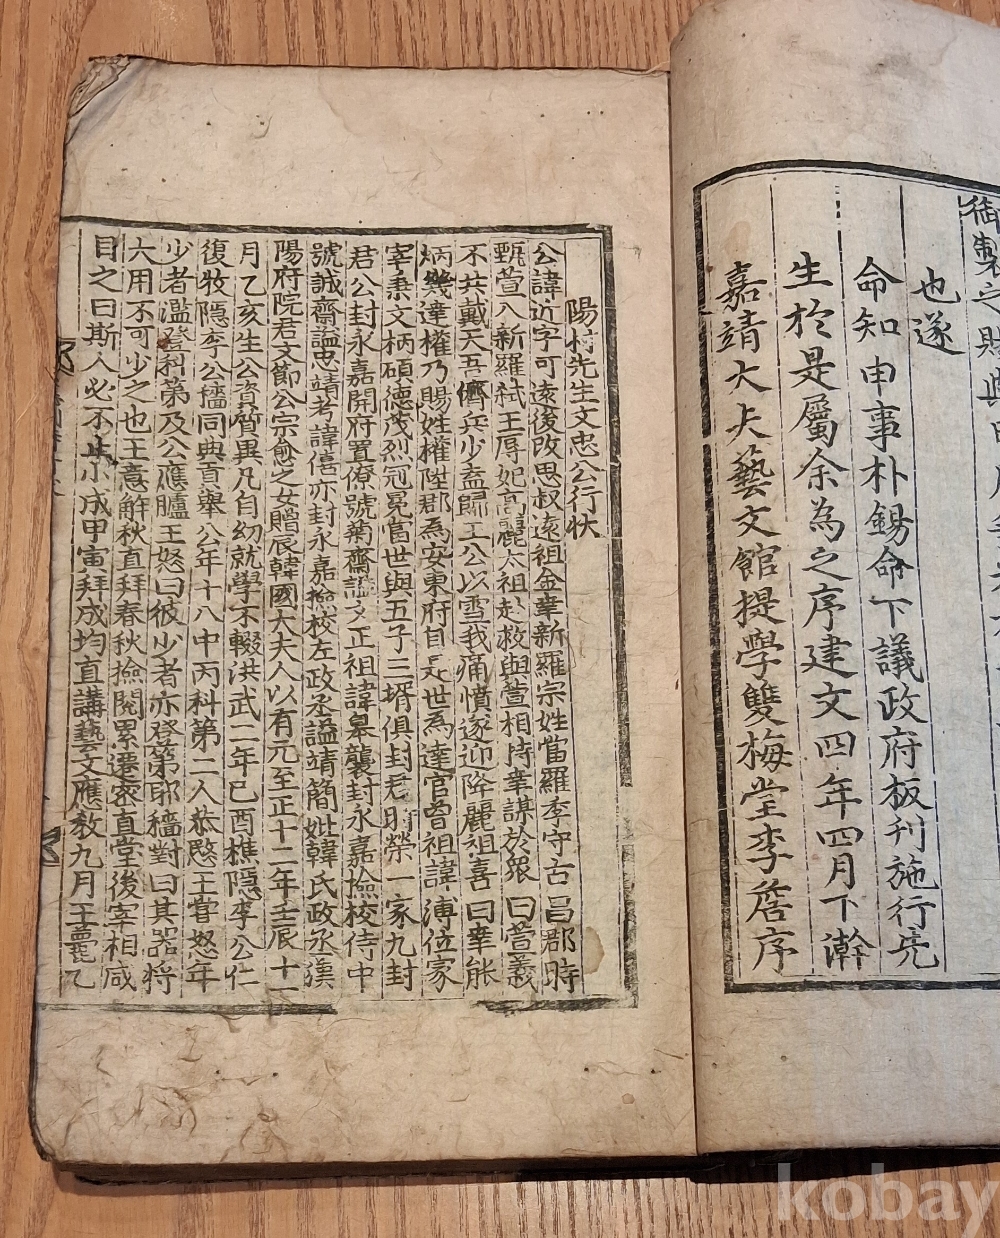 御製之賜典
也遂
命知申事朴錫命下議政府板刊施行亮
生於是屬余為之序建文四年四月下澣
嘉靖大夫藝文館提學雙梅堂李詹序
陽村先生文忠公行狀
公諱近字可遠後改思叔遠祖金幸新羅宗姓當羅季守古昌郡時
甄萱入新羅弑王辱妃高麗太祖赴救與萱相持幸謀於衆曰萱義
不共戴天吾儕兵少盍歸王公以雪我痛憤遂迎降麗祖喜曰幸能
炳幾達權乃賜姓權陞郡為安東府自是世為達官曾祖諱溥位冢
宰秉文柄碩德茂烈冠冕當世與五子三壻俱封君時榮一家九封
君公封永嘉開府置僚號菊齋諡文正祖諱皐襲封永嘉檢校侍中
號誠齋諡忠靖考諱僖亦封永嘉檢校左政丞諡靖簡妣韓氏政丞漢
陽府院君文節公宗愈之女贈辰韓國大夫人以有元至正十二年壬辰十一
月乙亥生公資質異凡自幼就學不輟洪武二年己酉樵隱李公仁
復牧隱李公穡同典貢舉公年十八中丙科第二人恭愍王嘗怒年
少者濫登科第及公應臚王怒曰彼少者亦登第耶穡對曰其器將
大用不可少之也王意解秋直拜春秋檢閱累遷密直堂後宰相咸
目之曰斯人必不止小成甲寅拜成均直講藝文應教九月王薨乙
kobay